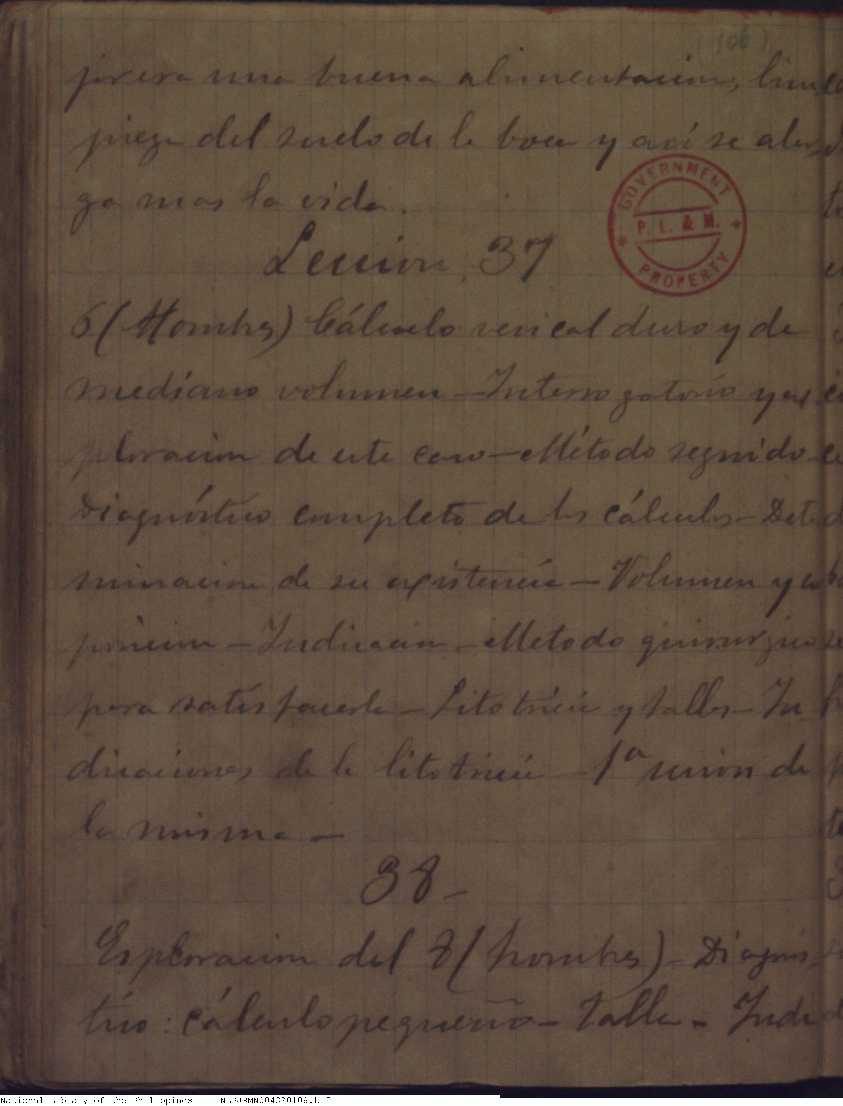 (106)
una buena alimentacion, lim
pieza del suelo de la boca y así se alar
ga mas la vida.
GOVERNMENT
P. L. & M.
PROPERTY
Leccion 37
6 (Hombres) Cálculo vesical duro y de
mediano volumen – Interrogatorio y ex
ploracion de este caso – Método seguido
Diagnóstico completo de los cálculos – Deter
minacion de su existencia – Volumen y com
posicion – Indicacion – Metodo quirurgico
para satisfacerla – Litotricia y talla – In
dicaciones de la litotricia – 1ª sesion de
la misma –
38 –
Esploracion del 8 (hombres) – Diagnós
tico: cálculo pequeño – Talla – Indi
National Library of the Philippines